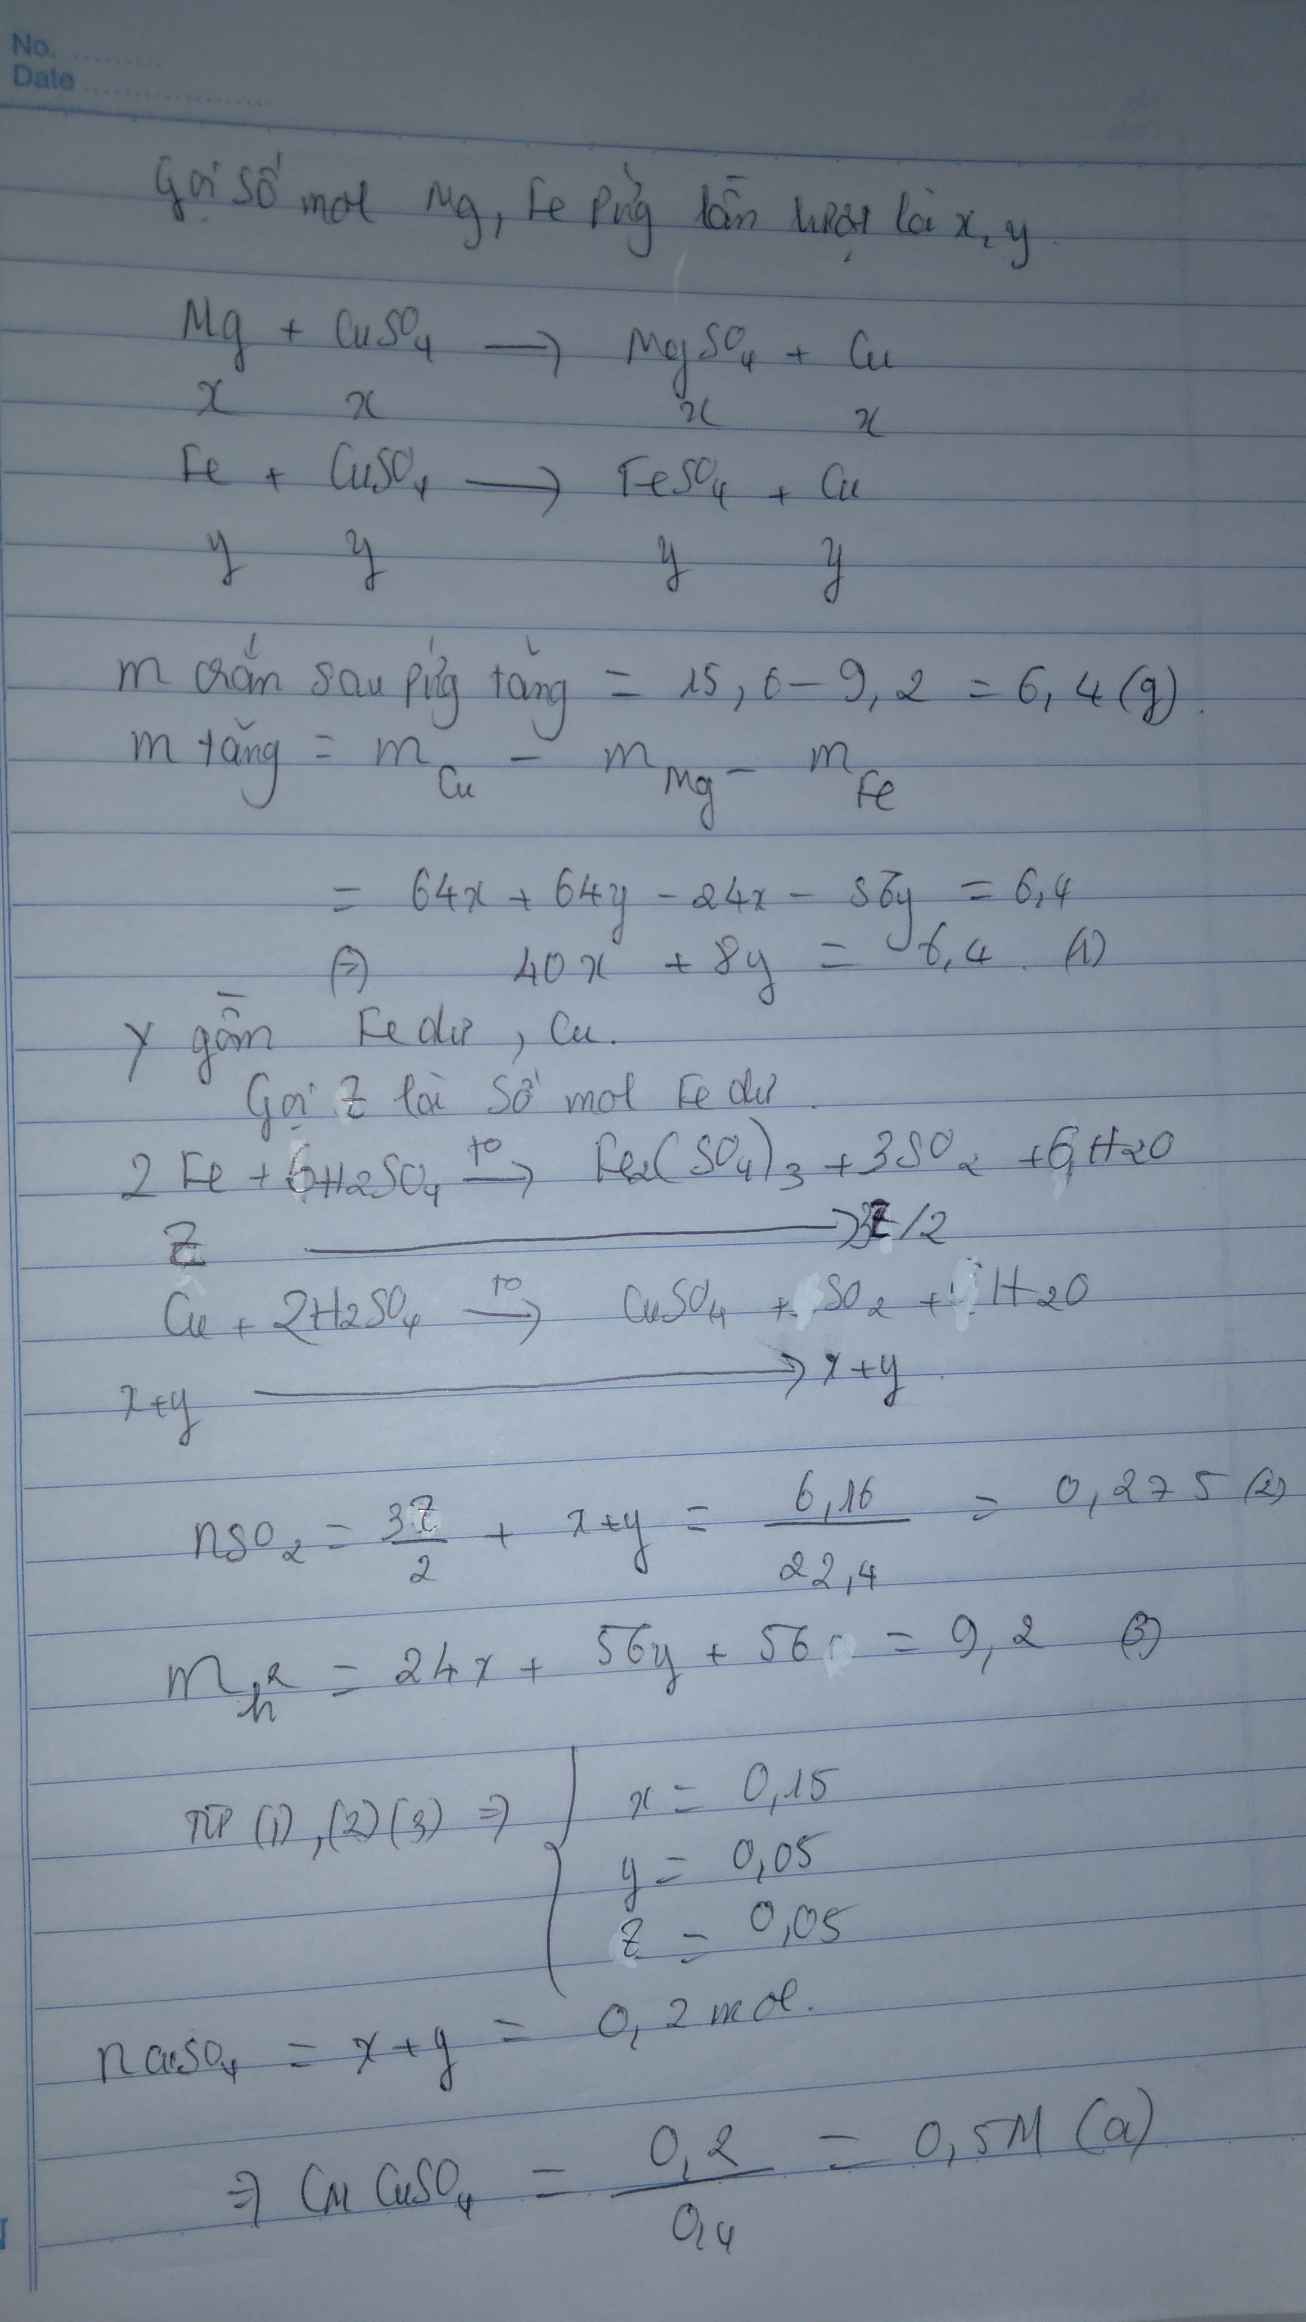 No. ..........
Date ..................
Gọi số mol Mg, Fe pứng lần lượt là x, y.
Mg + CuSO4 → MgSO4 + Cu
x x x x
Fe + CuSO4 → FeSO4 + Cu
y y y y
m rắn sau pứng tăng = 15,6 - 9,2 = 6,4 (g).
m tăng = mCu - mMg - mFe
= 64x + 64y - 24x - 56y = 6,4
(=) 40x + 8y = 6,4. (1)
Y gồm Fe dư, Cu.
Gọi Z là số mol Fe dư.
2 Fe + 6H2SO4 →to Fe2(SO4)3 + 3SO2 + 6H2O
Z → 3Z/2
Cu + 2H2SO4 →to CuSO4 + SO2 + H2O
x+y → x+y.
nSO2 = 3Z/2 + x+y = 6,16/22,4 = 0,275 (2)
m h2 = 24x + 56y + 56 = 9,2 (3)
Từ (1), (2) (3) =>
x = 0,15
y = 0,05
Z = 0,05
nCuSO4 = x+y = 0,2 mol.
=> CM CuSO4 = 0,2/0,4 = 0,5M (a)